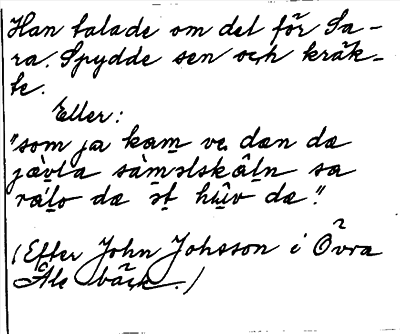 Han talade om det för Sa-
ra. Spydde sen och kräk-
te.
Eller:
"som ja kam ve dan dæ
jàvla sàməlskâln sa
ràlo dæ ət hûv dæ".
(Efter John Johsson i Övra
Åle bäck.)